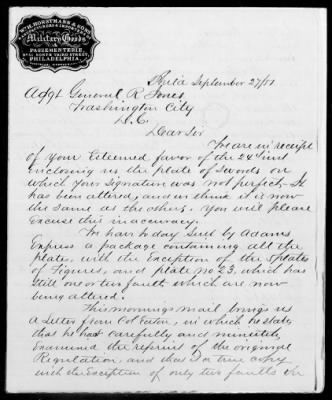 WM. H. HORSTMANN & SONS
Military Goods
PASSEMENTERIE,
NORTH THIRD STREET,
PHILADELPHIA
Phila September 27/51
Adjt General R Jones,
Washington City
D.C.
Dear Sir
We are in receipt
of your Esteemed favor of the 24" inst
Enclosing us, the plate of Swords on
which your Signature was not perfect— It
has been altered, and we think it is now
the same as the others. You will please
Excuse this inaccuracy.
We have to day Sent by Adams
Express a package containing all the
plates, with the Exception of the plates
of Figures, and plate no 23, which has
Still one or two faults which are now
being altered.
This mornings mail brings us
a Letter from Col Eaton, in which he states
that he has carefully and minutely
Examined the reprint of the original
Regulation, and it is a true copy
with the Exception of only two faults in